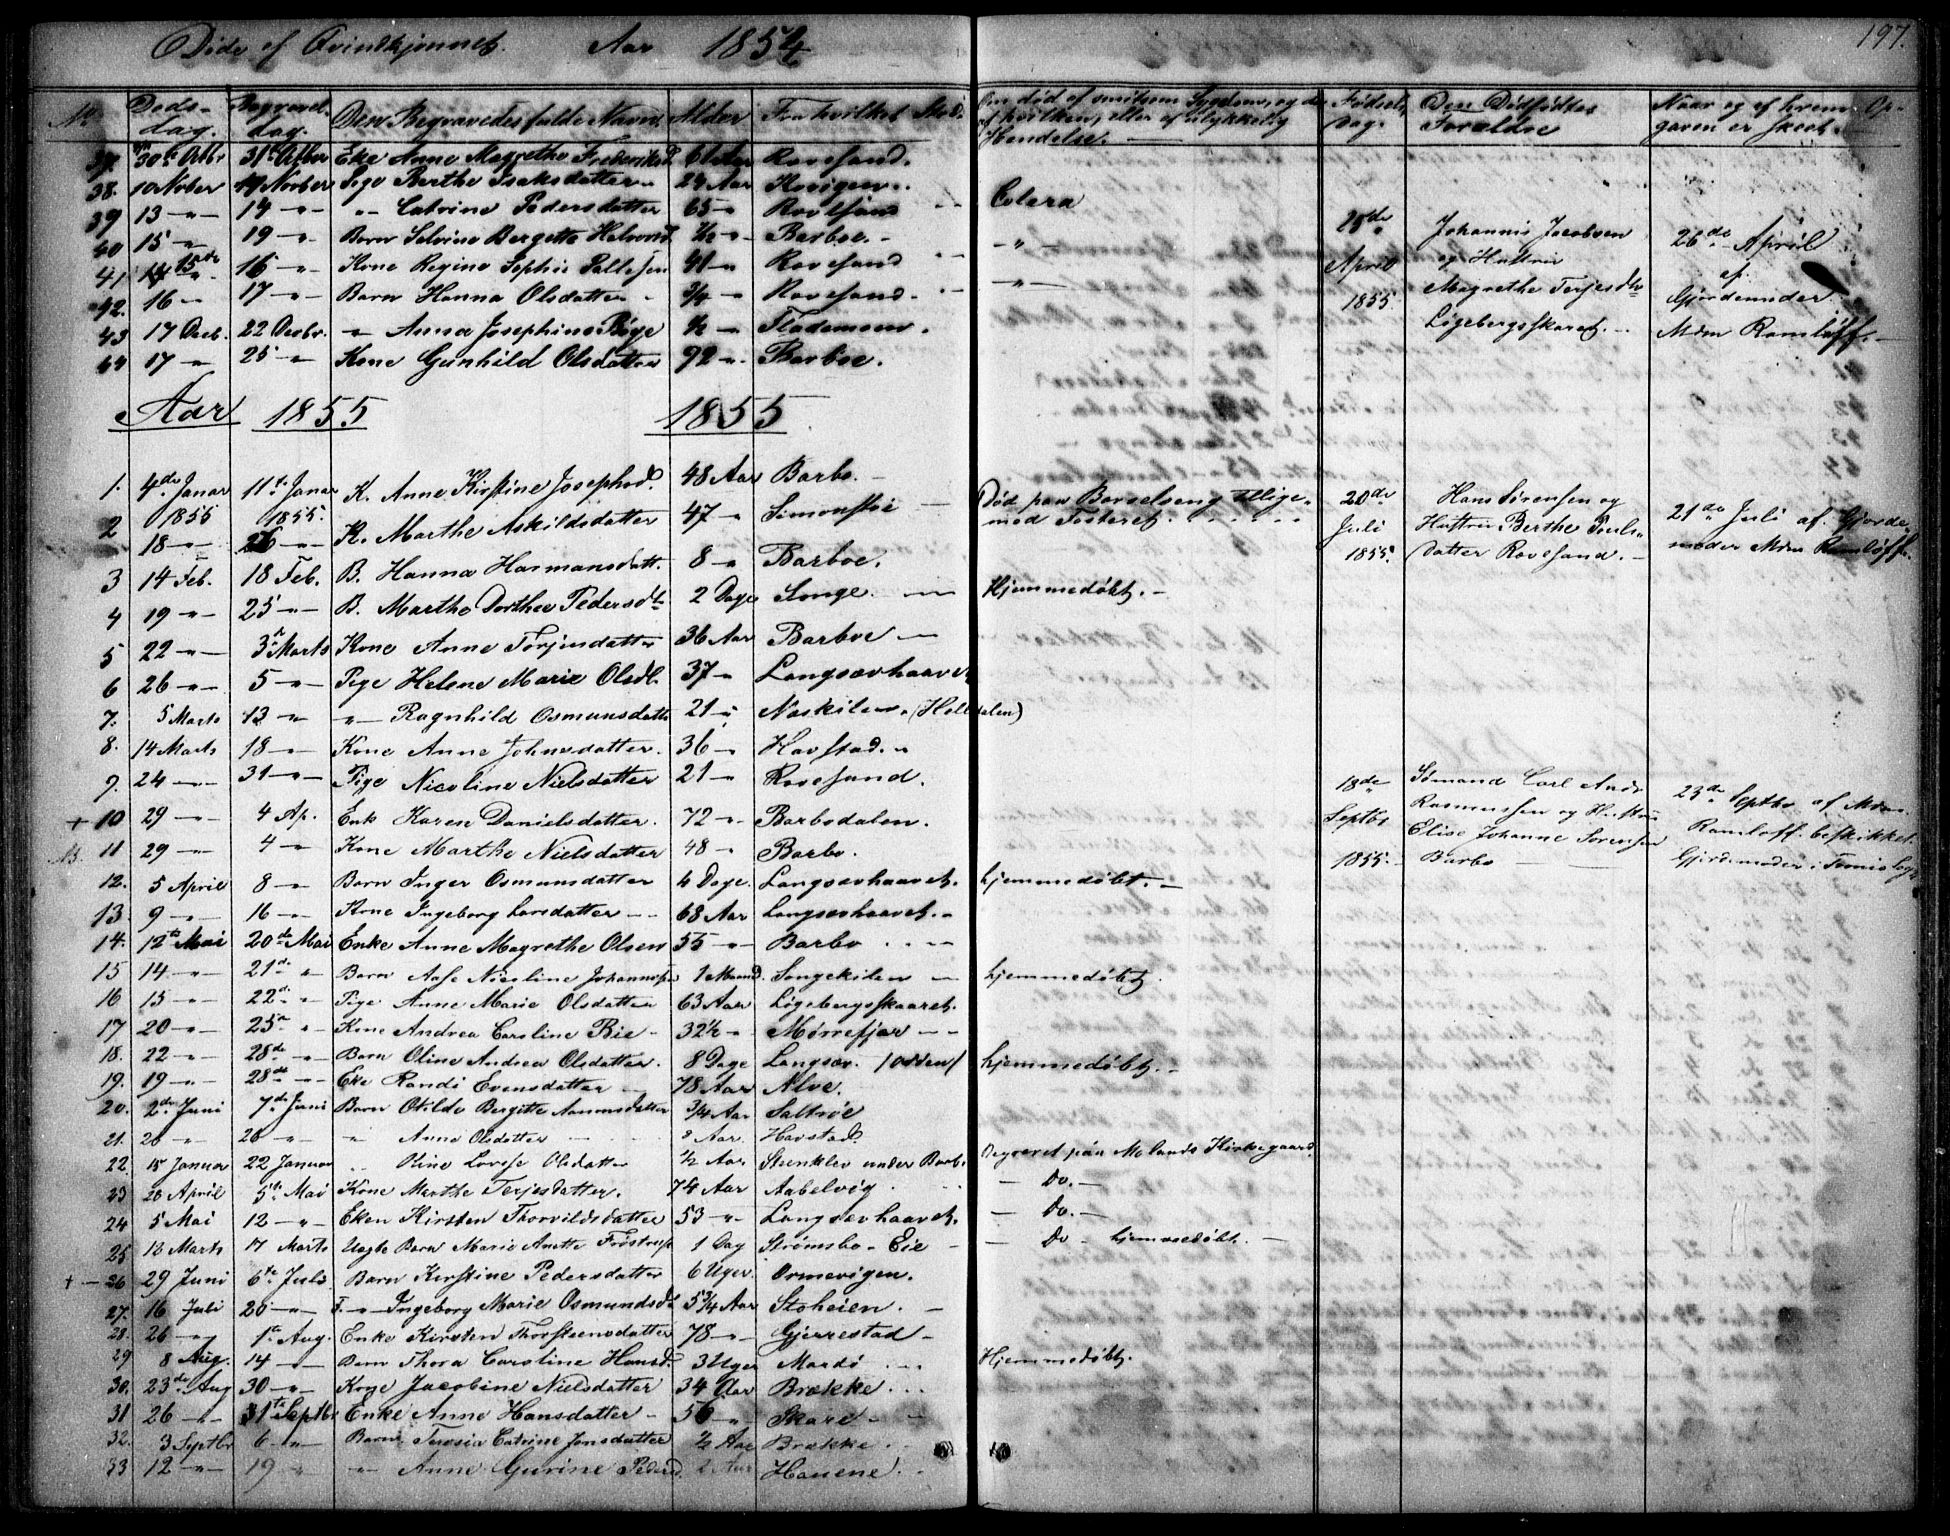 Døde af Qvindekjønnet. Aar 1854
197.
No Døds-dag. Begravel.dag. Den Begravedes fulde Navn. Alder Fra hvilket Sted. Om død af smitsom Sygdom, og da af hvilken, eller af ulykkelig Hændelse. Fødsels Dag. Den Dødfødtes Forældre Naar og af hvem Opgaven er skeet.
37. 30te Octbr 31te Octbr Eke Anne Magrethe Frederiksd. 61 Aar Rovesand.
38. 10 Nober 19 Novber Pige Berthe Isaksdatter 24 Aar Hovigen.
39 13 -"- 14 -"- -"- Catrine Pedersdatter 65 -"- Rovesand Colera
40 15 -"- 19 -"- Barn Selvine Bergette Halvord. ½ -"- Barboe.
41 15de 16 -"- Kone Regine Sophie Pallesen 41 -"- Rovesand -"-
42. 16 -"- 17 -"- Barn Hanna Olsdatter ¾ -"- Rovesand. -"-
43 17 Decb. 22 Decbr. -"- Anna Josephine Bøge ½ -"- Flademoen.
44 17 -"- 25 -"- Kone Gunhild Olsdatter 92 -"- Barboe.
28de April 1855. Johannis Jacobsen og Hustru Magrethe Terjesdtr Løgebergsskaret. 26de April af Gjordemoder Mdm Ramløff.
Aar 1855 1855
1. 4de Januar 1855 11te Januar 1855. K. Anne Kirstine Josephsd. 48 Aar Barbo.
2 18 -"- 26 -"- K. Marthe Askildsdatter 47 -"- Simonstøe Død paa Barselseng tillige med Fosteret.
3 14 Feb. 18 Feb. B. Hanna Harmansdatt. 8 -"- Barboe.
4 19 -"- 25 -"- B. Marthe Dorthea Pedersdt. 2 Dage Songe. Hjemmedøbt.
5 22 -"- 3 Marts Kone Anne Torjusdatter 36 Aar Barboe
6 26 -"- 5 -"- Pige Helene Marie Olsdt. 37 -"- Langsævhaavet
7. 5 Marts 13 -"- -"- Ragnhild Osmunsdatt. 21 -"- Neskilen. (Helldalen)
8. 14 Marts 18 -"- Kone Anne Johnsdatter. 36 -"- Havstad.
9. 24 -"- 31 -"- Pige Nicoline Nielsdatter 21 -"- Rovesand.
20de Juli 1855. Hans Sørensen og Hustru Berthe Pouls datter Rovesand. 21de Juli af Gjorde moder Mdm Ramløff.
+ 10 29 -"- 4 Ap. Enk Karen Danielsdatter. 72 -"- Barbodalen.
11 29 -"- 4 -"- Kone Marthe Nielsdatter 48 -"- Barbo.
18de Septbr 1855. Sømand Carl Andr. Rasmussen og Hustru Elise Johanne Sørensen Barbo 23de Septbr af Mdm. Ramløff. beskikket Gjordemoder i
12. 5 April 8 -"- Barn Inger Osmunsdatter 4 Dage. Langsævhaavet. hjemmedøbt.
13. 9 -"- 16 -"- Kone Ingeborg Larsdatter 68 Aar Langsævhaavet.
14. 12te Mai 20de Mai Enke Anne Magrethe Olsen 55 -"- Barbo
15 14 -"- 21de -"- Barn Aase Nicoline Johannes. 1 Maaned. Songekilen hjemmedøbt.
16 15 -"- 22de -"- Pige Anne Marie Olsdatter 63 Aar Løgebergsskaaret.
17 20 -"- 25de -"- Kone Andrea Caroline Bie 32½ -"- Mørrefjær
18. 22 -"- 28de -"- Barn Oline Andrea Olsdatter. 8 Dage Langsæv. /odden/ hjemmedøbt.
19. 19 -"- 28de -"- Eke Randi Evensdatter 78 Aar Alve.
20. 2de Juni 7de Juni Barn Otilde Bergitte Aanunsdatter ¾ Aar Saltrøe
21. 20 -"- 26 -"- -"- Anne Olsdatter 8 Aar. Havstad.
22. 15 Januar 22 Januar -"- Stine Lovise Olsdatter ½ Aar Steenklev under Barb. Begravet paa Molands Kirkegaard.
23 20 April 5te Mai Kone Marthe Terjesdatter. 74 Aar Aabelvig. Do.
24 5 Mai 12 -"- Eken Kirsten Thorvildsdatter 53 -"- Langsævhaavet. Do.
25 12 Marts 17 Marts Uægte Barn Marie Anette Frøstrup 1 Dag Strømsbo-Eie Do hjemmedøbt.
+ 26 29 Juni 6te Juli Barn Kirstine Pedersdatter 6 Uger. Ormevigen.
27. 16 Juli 20 -"- F. -"- Ingeborg Marie Osmundsd. 5¾ Aar Stoheien.
28. 26 -"- 1te Aug. Enke Kirsten Thorstensdatter 78 -"- Gjerrestad
29 8 Aug. 14 -"- Barn Thora Caroline Hansd. 3 Uger Mardö Hjemmedøbt.
30. 23de Aug 30 -"- Kone Jacobine Nielsdatter 34 Aar Brække
31 26 -"- 31te Septbr. Enke Anne Hansdatter 56 -"- Skare
32. 3 Septbr 6 -"- Barn Teresia Catrine Jensdatter ½ Aar Brække
33 12 -"- 19 -"- -"- Anne Gurine Pedersd. 2 Aar Hauene